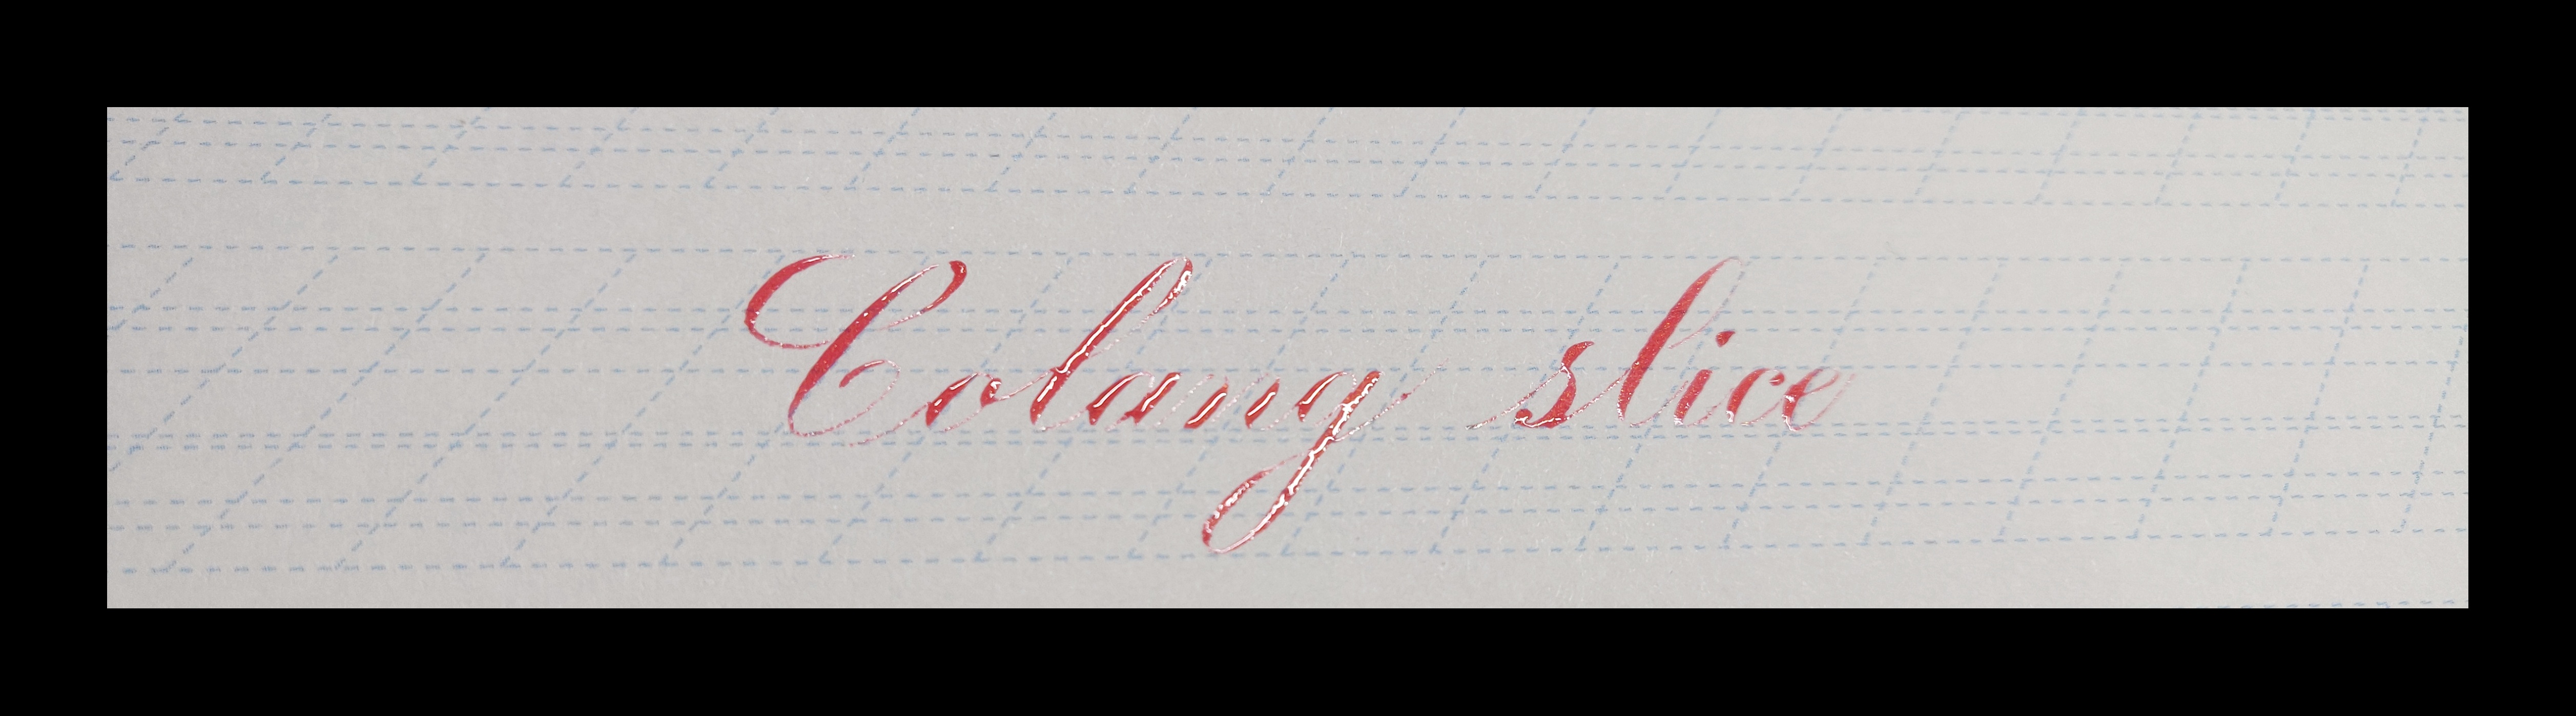 Colang slice